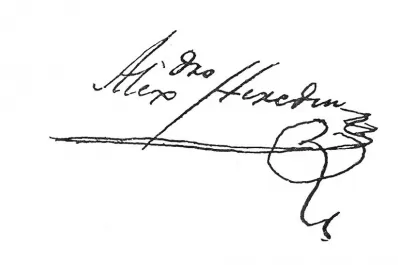 Alex dro Heredia